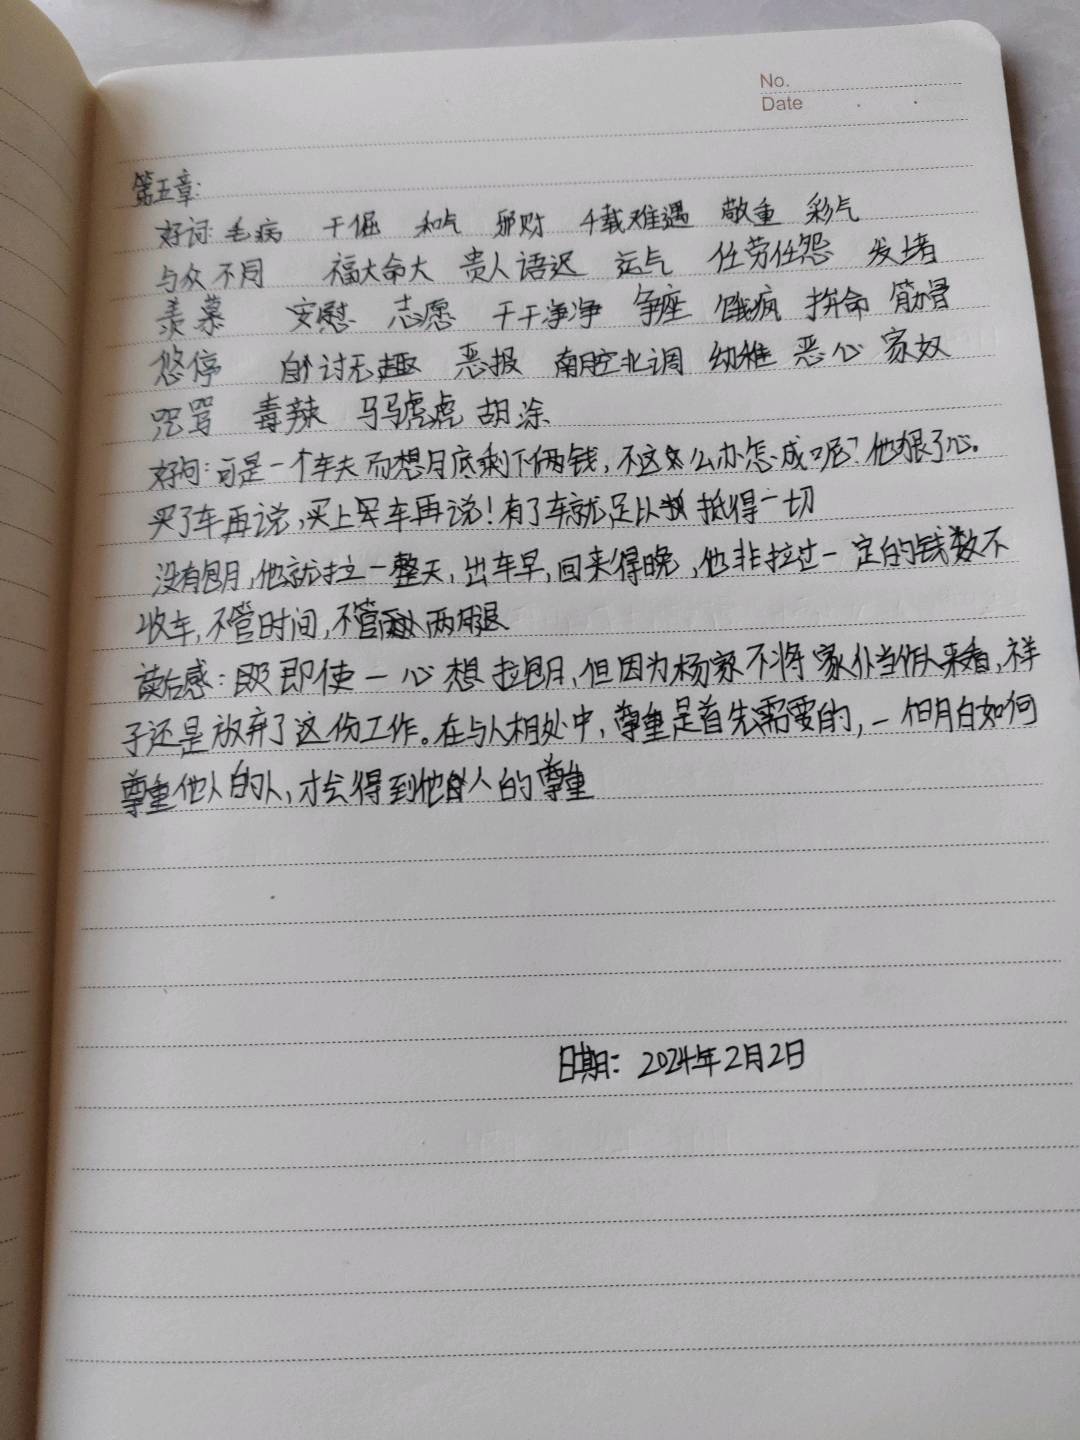 No.
Date
第五章:
好词: 毛病 干倔 和气 邪财 千载难遇 敬重 彩气
与众不同 福大命大 贵人语迟 运气 任劳任怨 发堵
羡慕 安慰 志愿 干干净净 争座 饿疯 拚命 筋骨
悠停 自讨无趣 恶报 南腔北调 幼稚 恶心 家奴
咒骂 毒辣 马马虎虎 胡涂
好句: 可是一个车夫而想月底剩下俩钱,不这么办怎成呢?他狠了心。
买了车再说,买上车再说!有了车就足以抵得一切
没有包月,他就拉一整天,出车早,回来得晚,他非拉过一定的钱数不
收车,不管时间,不管两腿
读后感: 即使一心想拉包月,但因为杨家不将家仆当作人来看,祥
子还是放弃了这份工作。在与人相处中,尊重是首先需要的,一但明白如何
尊重他人的人,才会得到他人的尊重
日期: 2024年2月2日